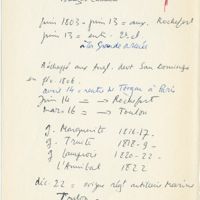 juin 1803 - juin 13 = aux. Rochefort
juin 13 = ent. 2e cl
à la Grande armée
Réchappé aux angl. devt San Domingo
en 1806.
avr 14 = rentre de Torgau à Paris
Juin 14 = → Rochefort
mars 16 = → Toulon
g. Marguerite 1816-17.
g. Truite 1818-9 -
g. Lamproie 1820-22 -
L'Annibal 1822
déc. 22 = chirurg régt artillerie Marine
Toulon